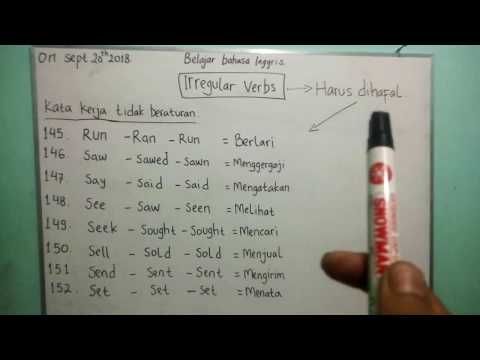 On sept 20th 2018
Belajar bahasa Inggris
Irregular Verbs → Harus dihapal
Kata kerja tidak beraturan:
145. Run - Ran - Run = Berlari
146. Saw - Sawed - Sawn = Menggergaji
147. Say - Said - Said = Mengatakan
148. See - Saw - Seen = Melihat
149. Seek - Sought - Sought = Mencari
150. Sell - Sold - Sold = Menjual
151. Send - Sent - Sent = Mengirim
152. Set - Set - Set = Menata
SNOWMAN